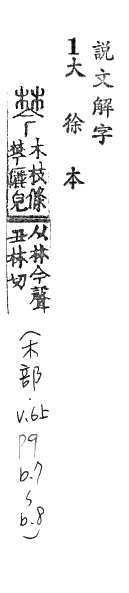 說文解字
1大徐本
棽
木枝條
棽儷皃
从林今聲
丑林切
(木部.
v.6上
p9
b.7
~
b.8)